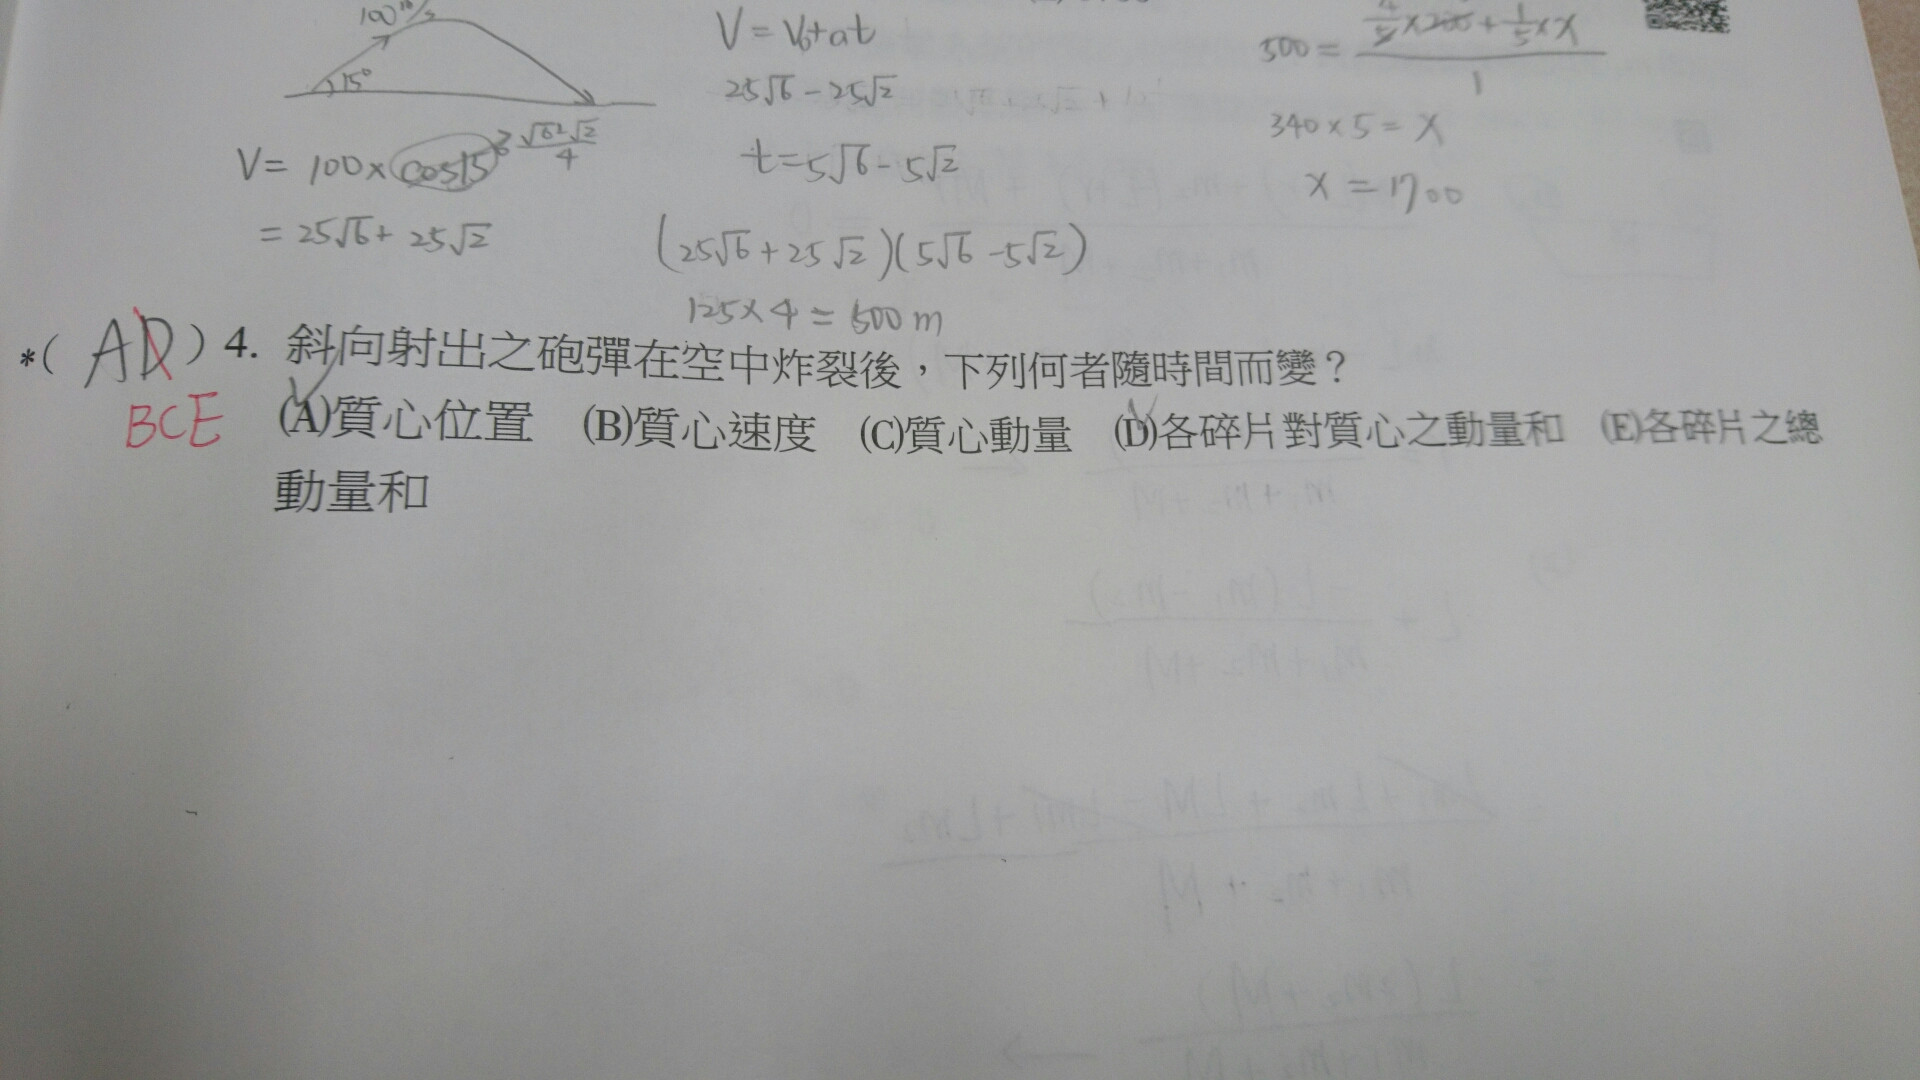 100 m/s
15°
V = 100 × cos15 √6+√2/4
= 25√6 + 25√2
V = V₀+at
25√6 − 25√2
t = 5√6 − 5√2
(25√6 + 25√2)(5√6 − 5√2)
125 × 4 = 500 m
500 = 4/5 × 200 + 1/5 × X / 1
340 × 5 = X
X = 1700
*( AD ) 4. 斜向射出之砲彈在空中炸裂後，下列何者隨時間而變？
BCE
(A)質心位置 (B)質心速度 (C)質心動量 (D)各碎片對質心之動量和 (E)各碎片之總
動量和